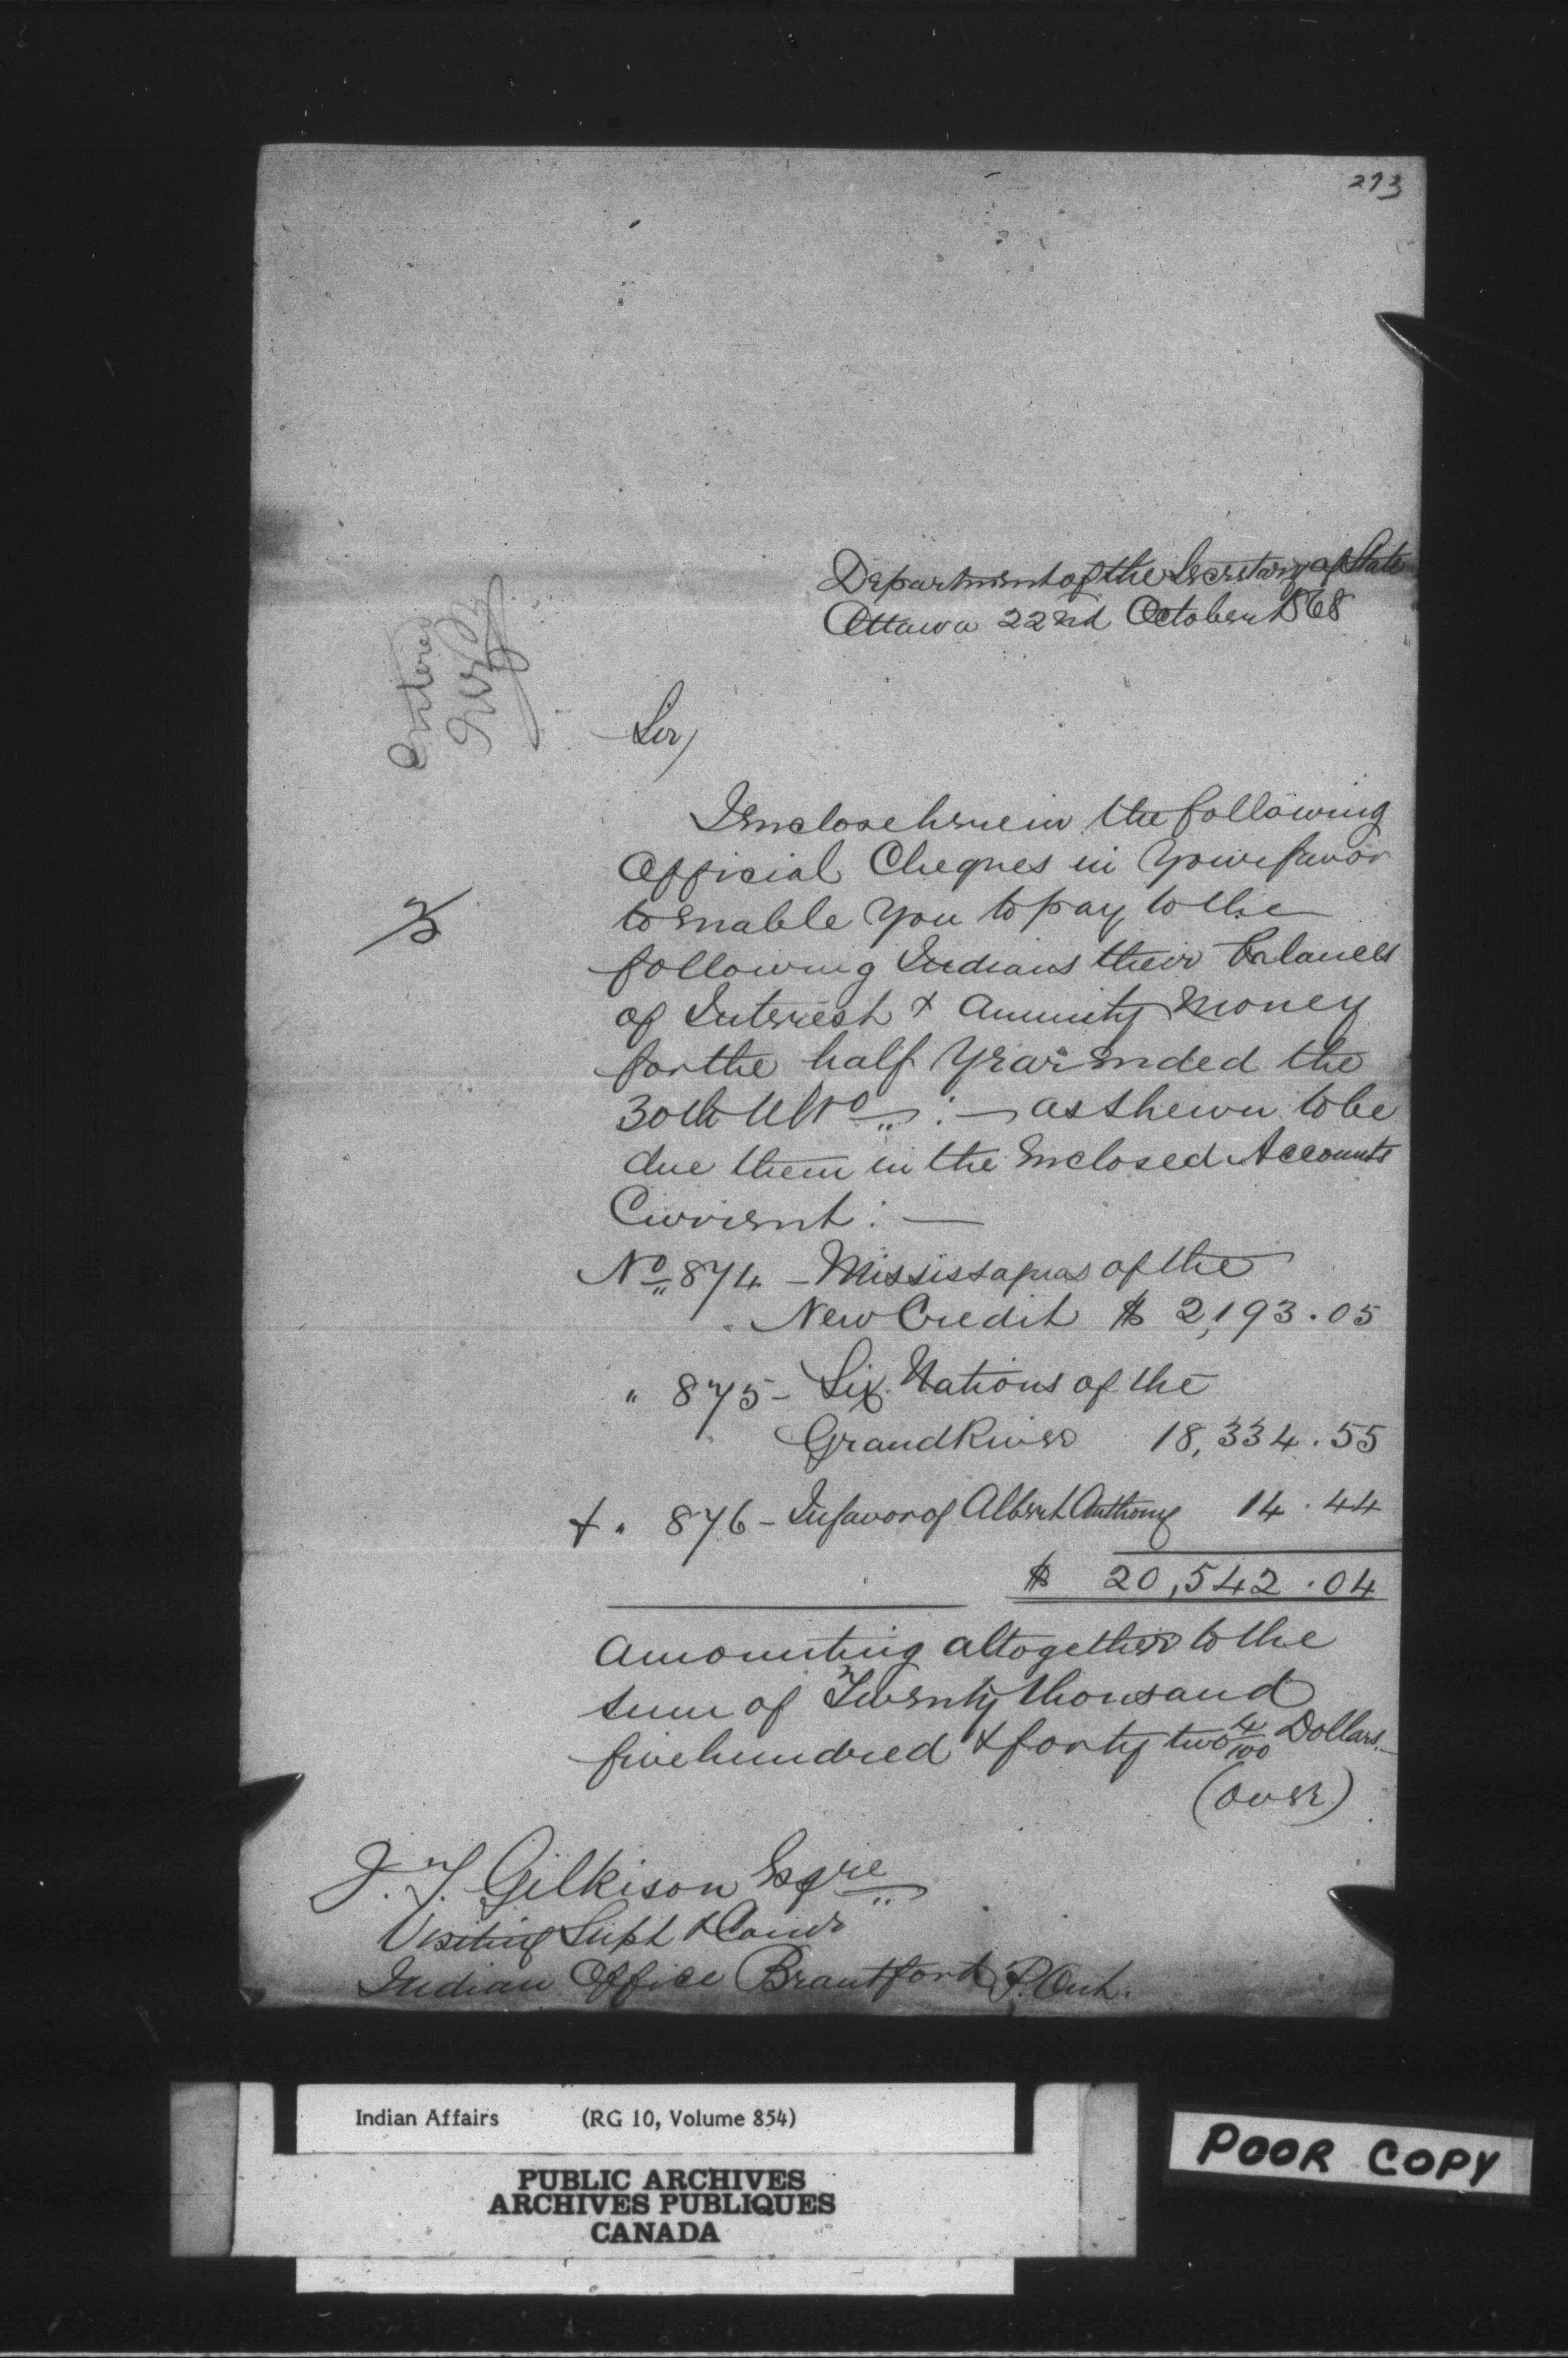 273
Department of the Secretary of State
Ottawa 22nd October 1868
Entered
Sir,
I enclose herein the following
Official Cheques in Your favor
to enable You to pay to the
following Indians their balances
of Interest & Annuity Money
for the half Year ended the
30th Ulto : — as shewn to be
due them in the Enclosed Accounts
Current : —
No 874 - Mississaguas of the
New Credit $ 2,193.05
" 875 - Six Nations of the
Grand River 18,334.55
+ " 876 - In favor of Albert Anthony 14.44
$ 20,542.04
Amounting altogether to the
sum of Twenty thousand
five hundred & forty two 4/100 Dollars.—
(over)
J. T. Gilkison Esqre
Visiting Supt & Comr
Indian Office Brantford P. Ont.
Indian Affairs (RG 10, Volume 854)
PUBLIC ARCHIVES
ARCHIVES PUBLIQUES
CANADA
POOR COPY